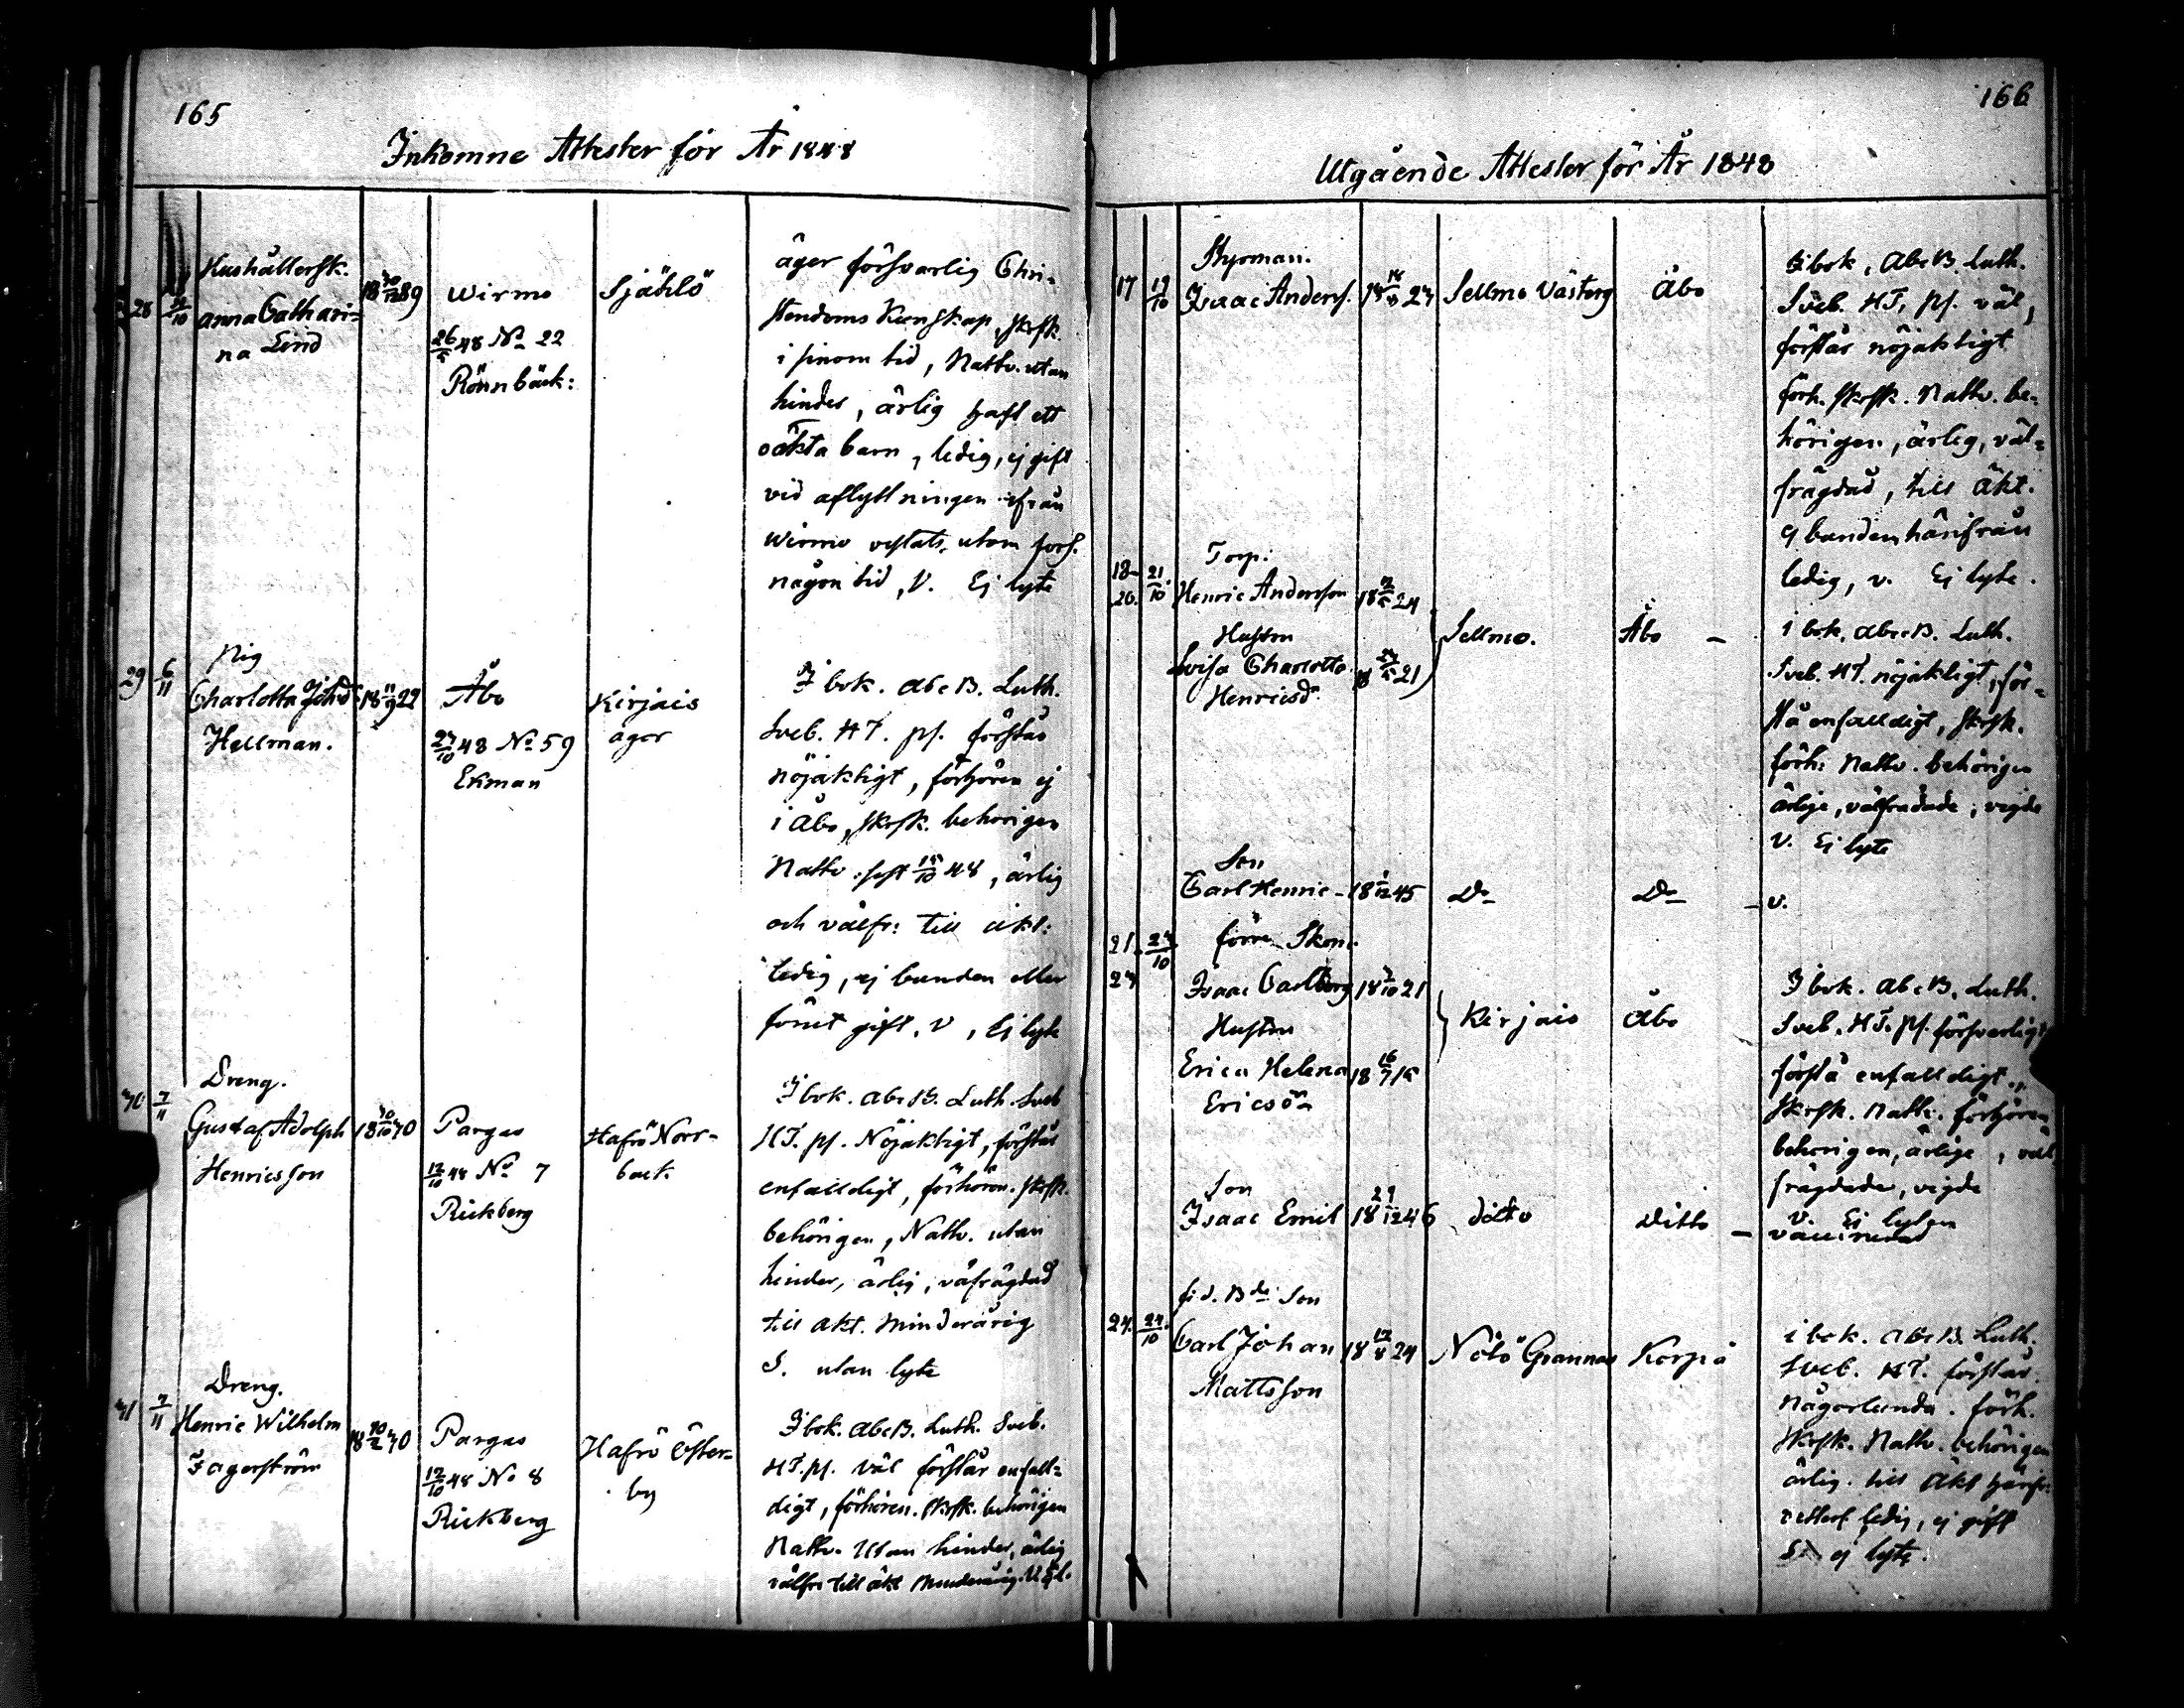 165
Inkomne Attester för År 1848
28 10
Hushållersk.
anna Cathari=
na Lind
18 30/12 89
Wirmo
26/5 48 No 22
Rönnbäck:
Själslö
äger försvarlig Chri-
stendoms Kunskap, skrsk.
i sinom tid, Nattv. utan
hinder, ärlig haft ett
oäkta barn, ledig, ej gift
vid aflyttningen ifrån
Wirmo
någon tid, V. Ej lyte
29 6/11
pig
Charlotta Johsdr
Hellman.
18 11/9 22
Åbo
27/10 48 No 59
Ekman
Kirjais
äger
I bok. abcB. Luth.
Sveb. HT. ps. förstår
nöjaktigt, förhören ej
i Åbo, skrsk. behörigen
Nattv. sist 15/10 48, ärlig
och välfr: till äkt:
ledig, ej bunden eller
förut gift, V, Ej lyte
30 7/11
Dreng.
Gustaf Adolph
Henricsson
18 30/10 30
Pargas
12/10 48 No 7
Rickberg
Hafrö Norr-
back
I bok. abcB. Luth. Sveb
HT. ps. Nöjaktigt, förstår
enfalldigt, förhören. skrsk.
behörigen, Nattv. utan
hinder, ärlig, väfrägdad
till äkt. minderårig
S. utan lyte
31 7/11
Dreng.
Henric Wilhelm
Fagerström
18 30
Pargas
12/10 48 No 8
Rickberg
Hafrö Öster-
by
I bok. abcB. Luth. Sveb.
HT. ps. väl förstår enfall=
digt, förhören. skrsk. behörigen
Nattv. Utan hinder, ärlig
välfr: till äkt minderårig. V. Ej l.
166
Utgående Attester för År 1848
17 17/10
Styrman.
Isaac Anders.
18 23
Sellmo Västerg
Åbo
I bok, AbcB. Luth.
Sveb. HT, ps. väl,
förstår nöjaktigt
förh. skrsk. Nattv. be-
hörigen, ärlig, väl=
frägdad, till äkt.
ej bunden härifrån
ledig, v. Ej lyte.
18- 21/10
20.
Torp:
Henric Andersson
18 24
Hustrun
Lovisa Charlotta
Henricsdr
18 21
Sellmo.
Åbo -
i bok, abcB. Luth.
Sveb. HT. nöjaktigt, för-
stå enfalldigt, skrsk.
förh: Nattv. behörigen
ärlige, välfrädade, vigde
V. Ej lyte
Son
Carl Henric - 18 1/12 45
Do
Do - v.
21. 24/10
23
förre Skom:
Isaac Carlberg
18 7/10 21
Hustrun
Erica Helena
Ericsdr
18 16/7 15
Kirjais
Åbo
I bok. AbcB. Luth.
Sveb. HT. ps. försvarligt
förstå enfalldigt,
skrsk. Nattv. förhören
behörigen, ärlige, väl
frägdade, vigde
V. Ej lyten
Son
Isaac Emil
18 29/12 46
ditto
Ditto -
vaccinerad
24. 24./10
fid. Bde Son
Carl Johan
Mattsson
18 12/8 24
Nötö Grannas
Korpo
i bok. abcB. Luth.
Sveb. HT. förstår.
någorlunda. förh.
skrsk. Nattv. behörigen
ärlig. till äkt härfr:
ledig, ej gift
ej lyte.